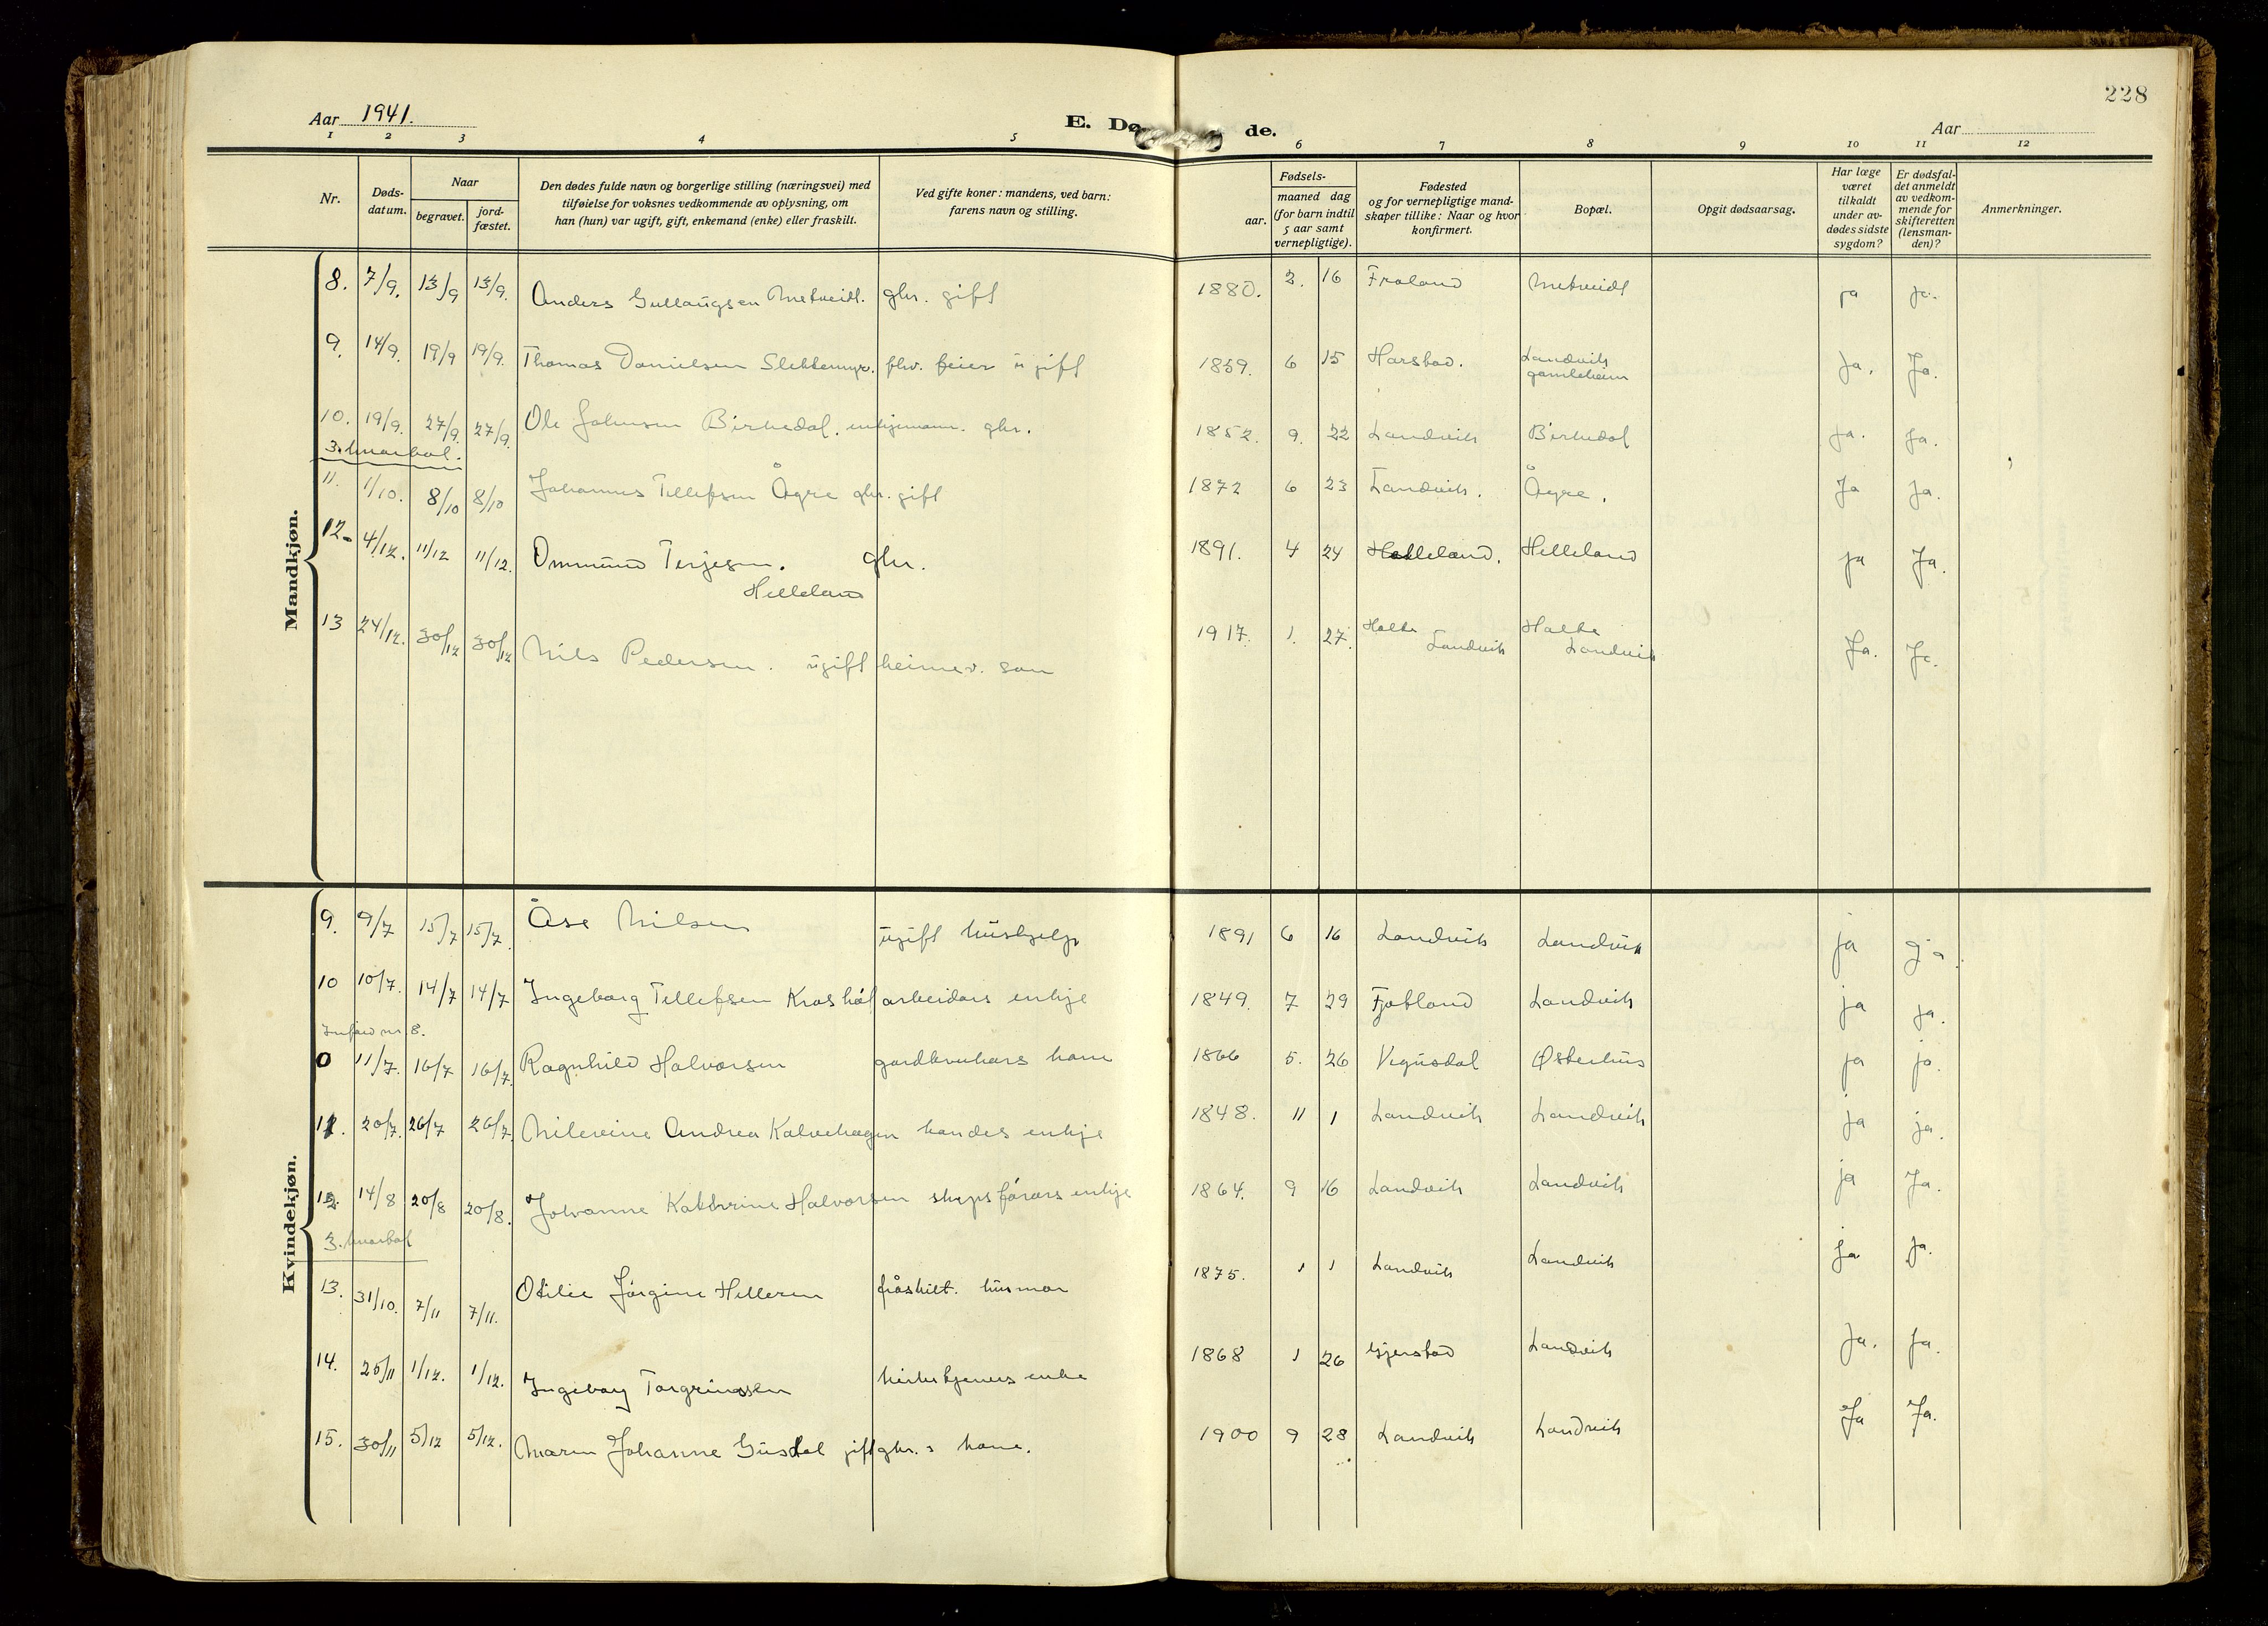 228
Aar 1941.
E. Dø de.
Aar
1 2 3 4 5 6 7 8 9 10 11 12
Nr.
Døds-
datum.
Naar
begravet.
jord-
fæstet.
Den dødes fulde navn og borgerlige stilling (næringsvei) med
tilføielse for voksnes vedkommende av oplysning, om
han (hun) var ugift, gift, enkemand (enke) eller fraskilt.
Ved gifte koner: mandens, ved barn:
farens navn og stilling.
Fødsels-
aar.
maaned dag
(for barn indtil
5 aar samt
vernepligtige).
Fødested
og for vernepligtige mand-
skaper tillike: Naar og hvor
konfirmert.
Bopæl.
Opgit dødsaarsag.
Har læge
været
tilkaldt
under av-
dødes sidste
sygdom?
Er dødsfal-
det anmeldt
av vedkom-
mende for
skifteretten
(lensman-
den)?
Anmerkninger.
Mandkjøn.
8. 7/9. 13/9 13/9. Anders Gullaugsen Metveidt. gbr. gift 1880. 2. 16 Froland Metveidt ja ja.
9. 14/9. 19/9 19/9. Thomas Danielsen Slettemyr. fhv. feier ugift 1859. 6 15 Harstad. Landvik
gamleheim Ja. Ja.
10. 19/9. 27/9. 27/9. Ole Johnsen Birkedal. enkjemann. gbr. 1852. 9. 22 Landvik Birkedal Ja. Ja.
3. kvartal.
11. 1/10. 8/10 8/10 Johannes Tellefsen Ågre gbr. gift 1872 6 23 Landvik. Ågre. Ja Ja.
12. 4/12. 11/12 11/12. Ommund Terjesen. gbr. 1891. 4 24 Helleland. Helleland ja Ja.
Helleland
13 24/12. 30/12 30/12 Nils Pedersen. ugift heimev. son 1917. 1. 27. Holte
Landvik Holte
Landvik Ja. Ja.
Kvindekjøn.
9. 9/7 15/7 15/7. Åse Nilsen ugift hushjelp 1891 6 16 Landvik Landvik ja ja
10 10/7. 14/7 14/7 Ingeborg Tellefsen arbeidars enkje 1849. 7 29 Fjotland Landvik ja ja.
Innførd nr. 8.
0 11/7. 16/7 16/7. Ragnhild Halvorsen gardbrukars kone 1866 5. 26 Vegusdal Østerhus ja ja.
11. 20/7. 26/7 26/7 Nilevine Andrea Kalvehagen enkje 1848. 11 1 Landvik Landvik ja ja.
12. 14/8 20/8 20/8. Johanne Kathrine Halvorsen skipsførars enkje 1864. 9 16 Landvik Landvik ja Ja.
3. kvartal
13. 31/10. 7/11 7/11. Otilie Jørgine Helleren fråskilt. husmor 1875. 1 1 Landvik Landvik Ja Ja.
14. 25/11 1/12. 1/12. Ingeborg Torgrimssen enke 1868 1 26 Gjerstad Landvik Ja. Ja.
15. 30/11 5/12 5/12. Maren Johanne Gusdal gift gbr.s kone. 1900 9 28 Landvik Landvik Ja Ja.